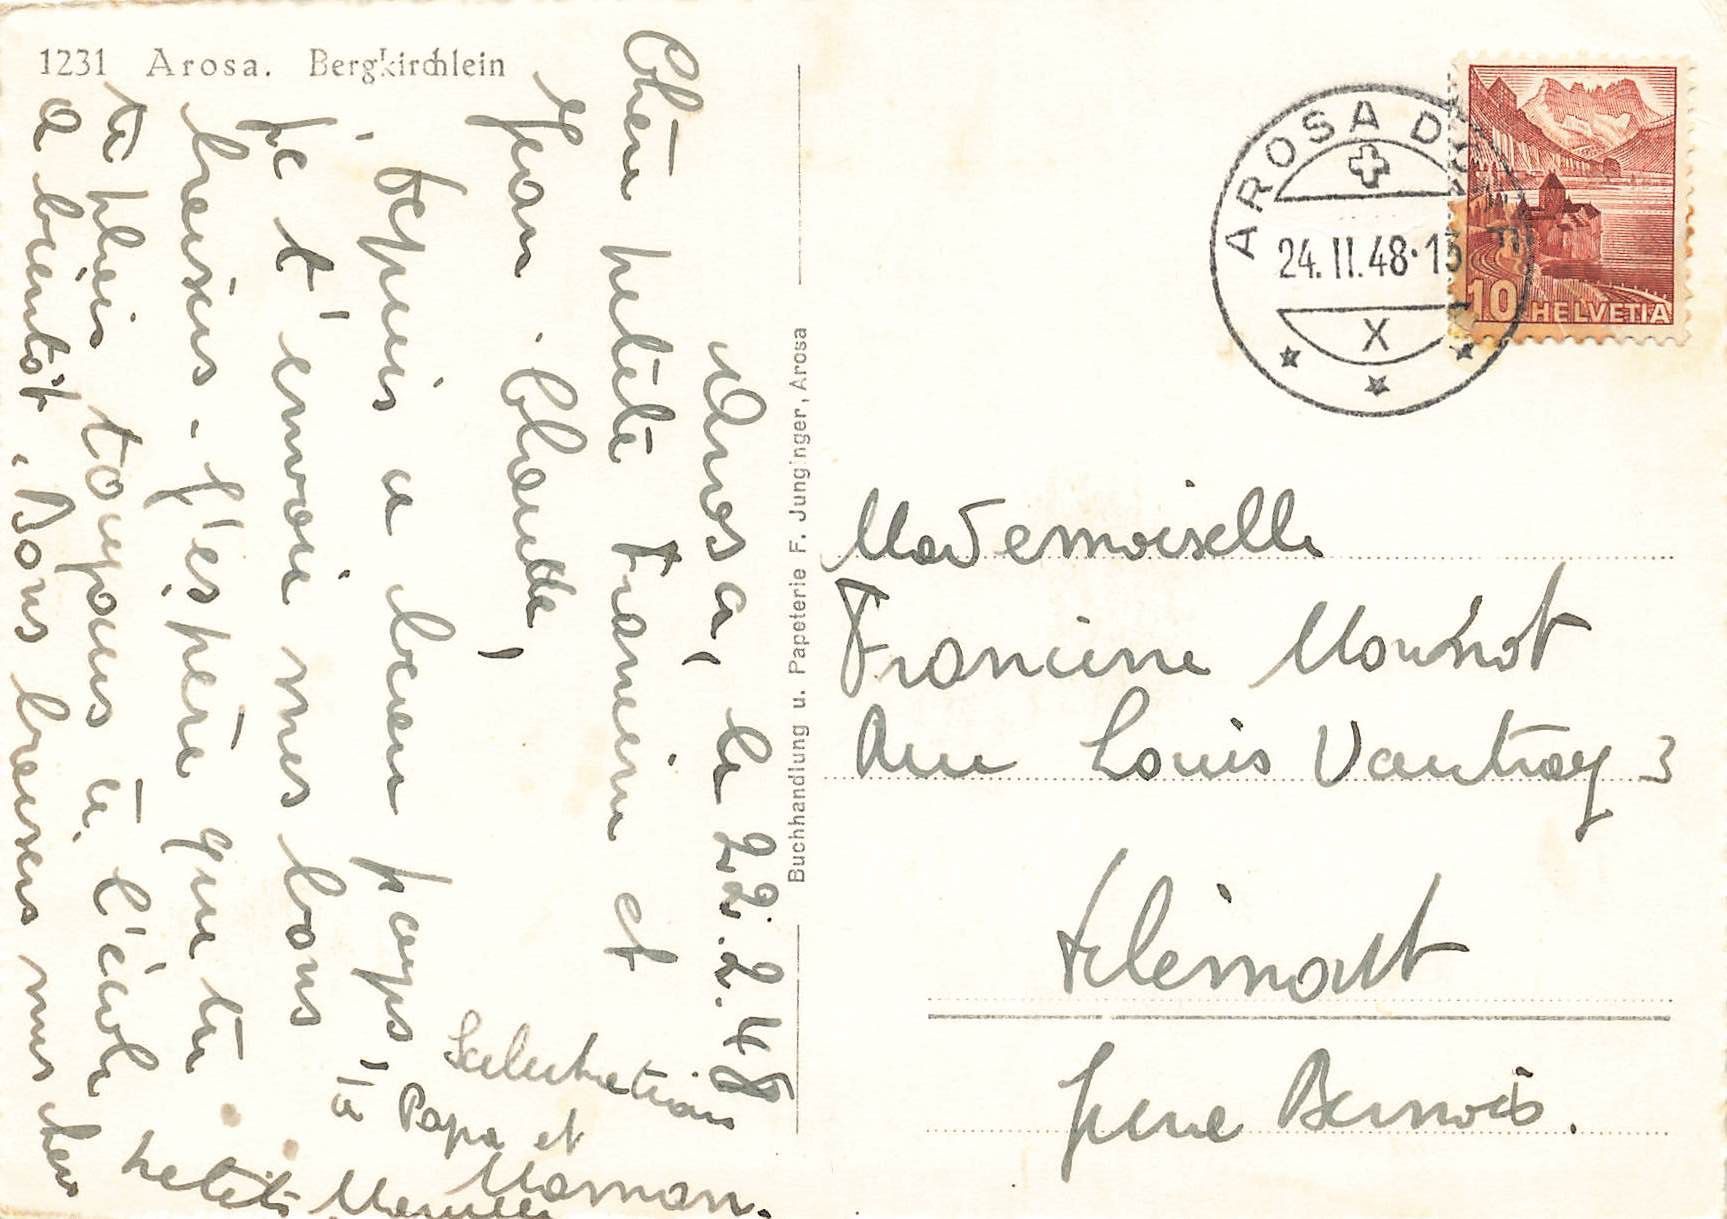 1231 Arosa. Bergkirchlein
Arosa, le 22.2.48
Chère petite Francine et
Jean-Claude,
Depuis a beau pays,
je t'envoie mes bons
baisers. J'espère que tu
te plais toujours à l'école
a bientôt. Bons baisers mes chers
petits
Salutations
à Papa et
Maman.
Buchhandlung u. Papeterie F. Junginger, Arosa
AROSA
24.II.48·13
X
10 HELVETIA
Mademoiselle
Francine Mouhot
Rue Louis Vautrey 3
Delémont
Jura Bernois.